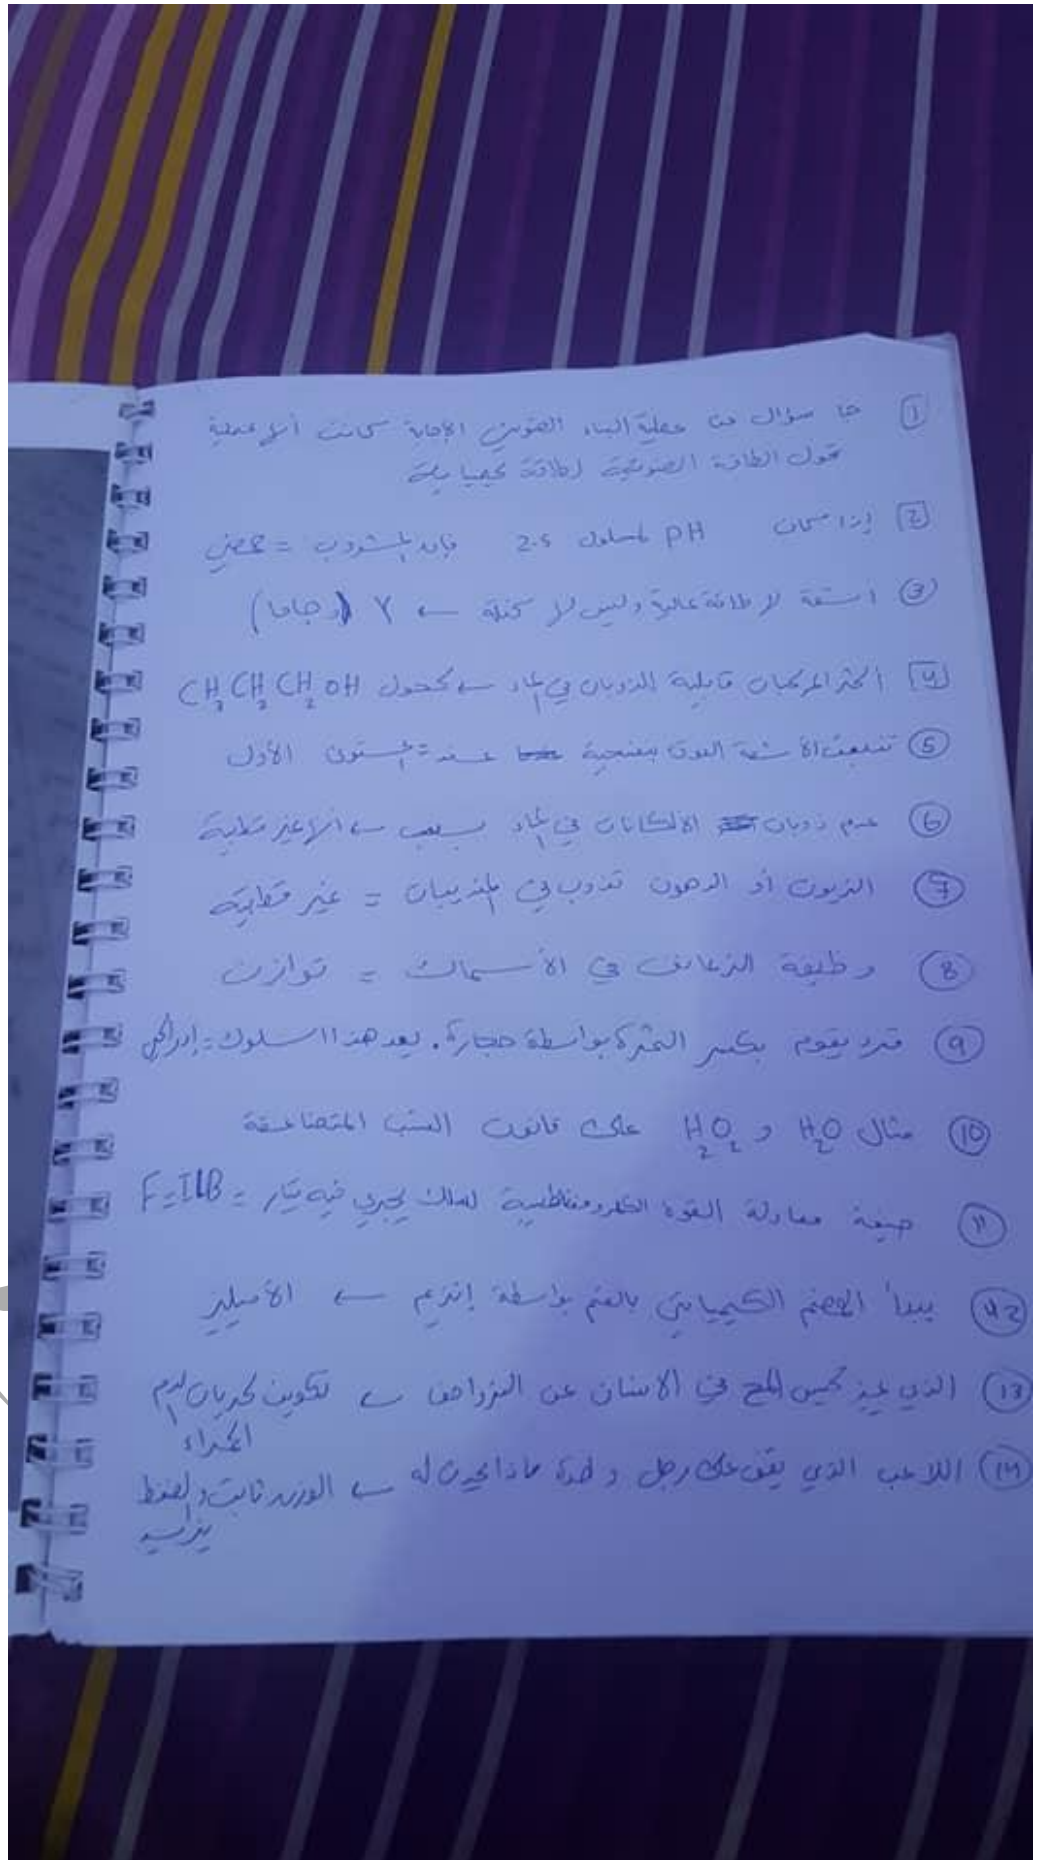 ① جا سؤال عن عملية البناء الضوئي الاجابة كانت أنها عملية
تحول الطاقة الضوئية لطاقة كيميائية
② إذا كان PH لمحلول 2.5 فإن المشروب = حمضي
③ أشعة لها طاقة عالية وليس لها كتلة ← γ (جاما)
④ اكثر المركبات قابلية الذوبان في الماء ← كحول CH₃CH₂CH₂OH
⑤ تنبعث الأشعة الفوق بنفسجية عند = المستوى الأول
⑥ عدم ذوبان الالكانات في الماء بسبب ← انها غير قطبية
⑦ الزيوت أو الدهون تذوب في المذيبات = غير قطبية
⑧ وظيفة الزعانف في الأسماك = توازن
⑨ قرد يقوم بكسر الثمرة بواسطة حجارة. يعد هذا السلوك = إدراكي
⑩ مثال H₂O و H₂O₂ على قانون النسب المتضاعفة
⑪ صيغة معادلة القوة الكهرومغناطيسية لسلك يجري فيه تيار = F=ILB
⑫ يبدأ الهضم الكيميائي بالفم بواسطة إنزيم ← الأميليز
⑬ الذي يميز المح في الانسان عن الزواحف ← تكوين كريات الدم
الحمراء
⑭ اللاعب الذي يقف على رجل واحدة ماذا يحدث له ← الوزن ثابت والضغط
يزداد